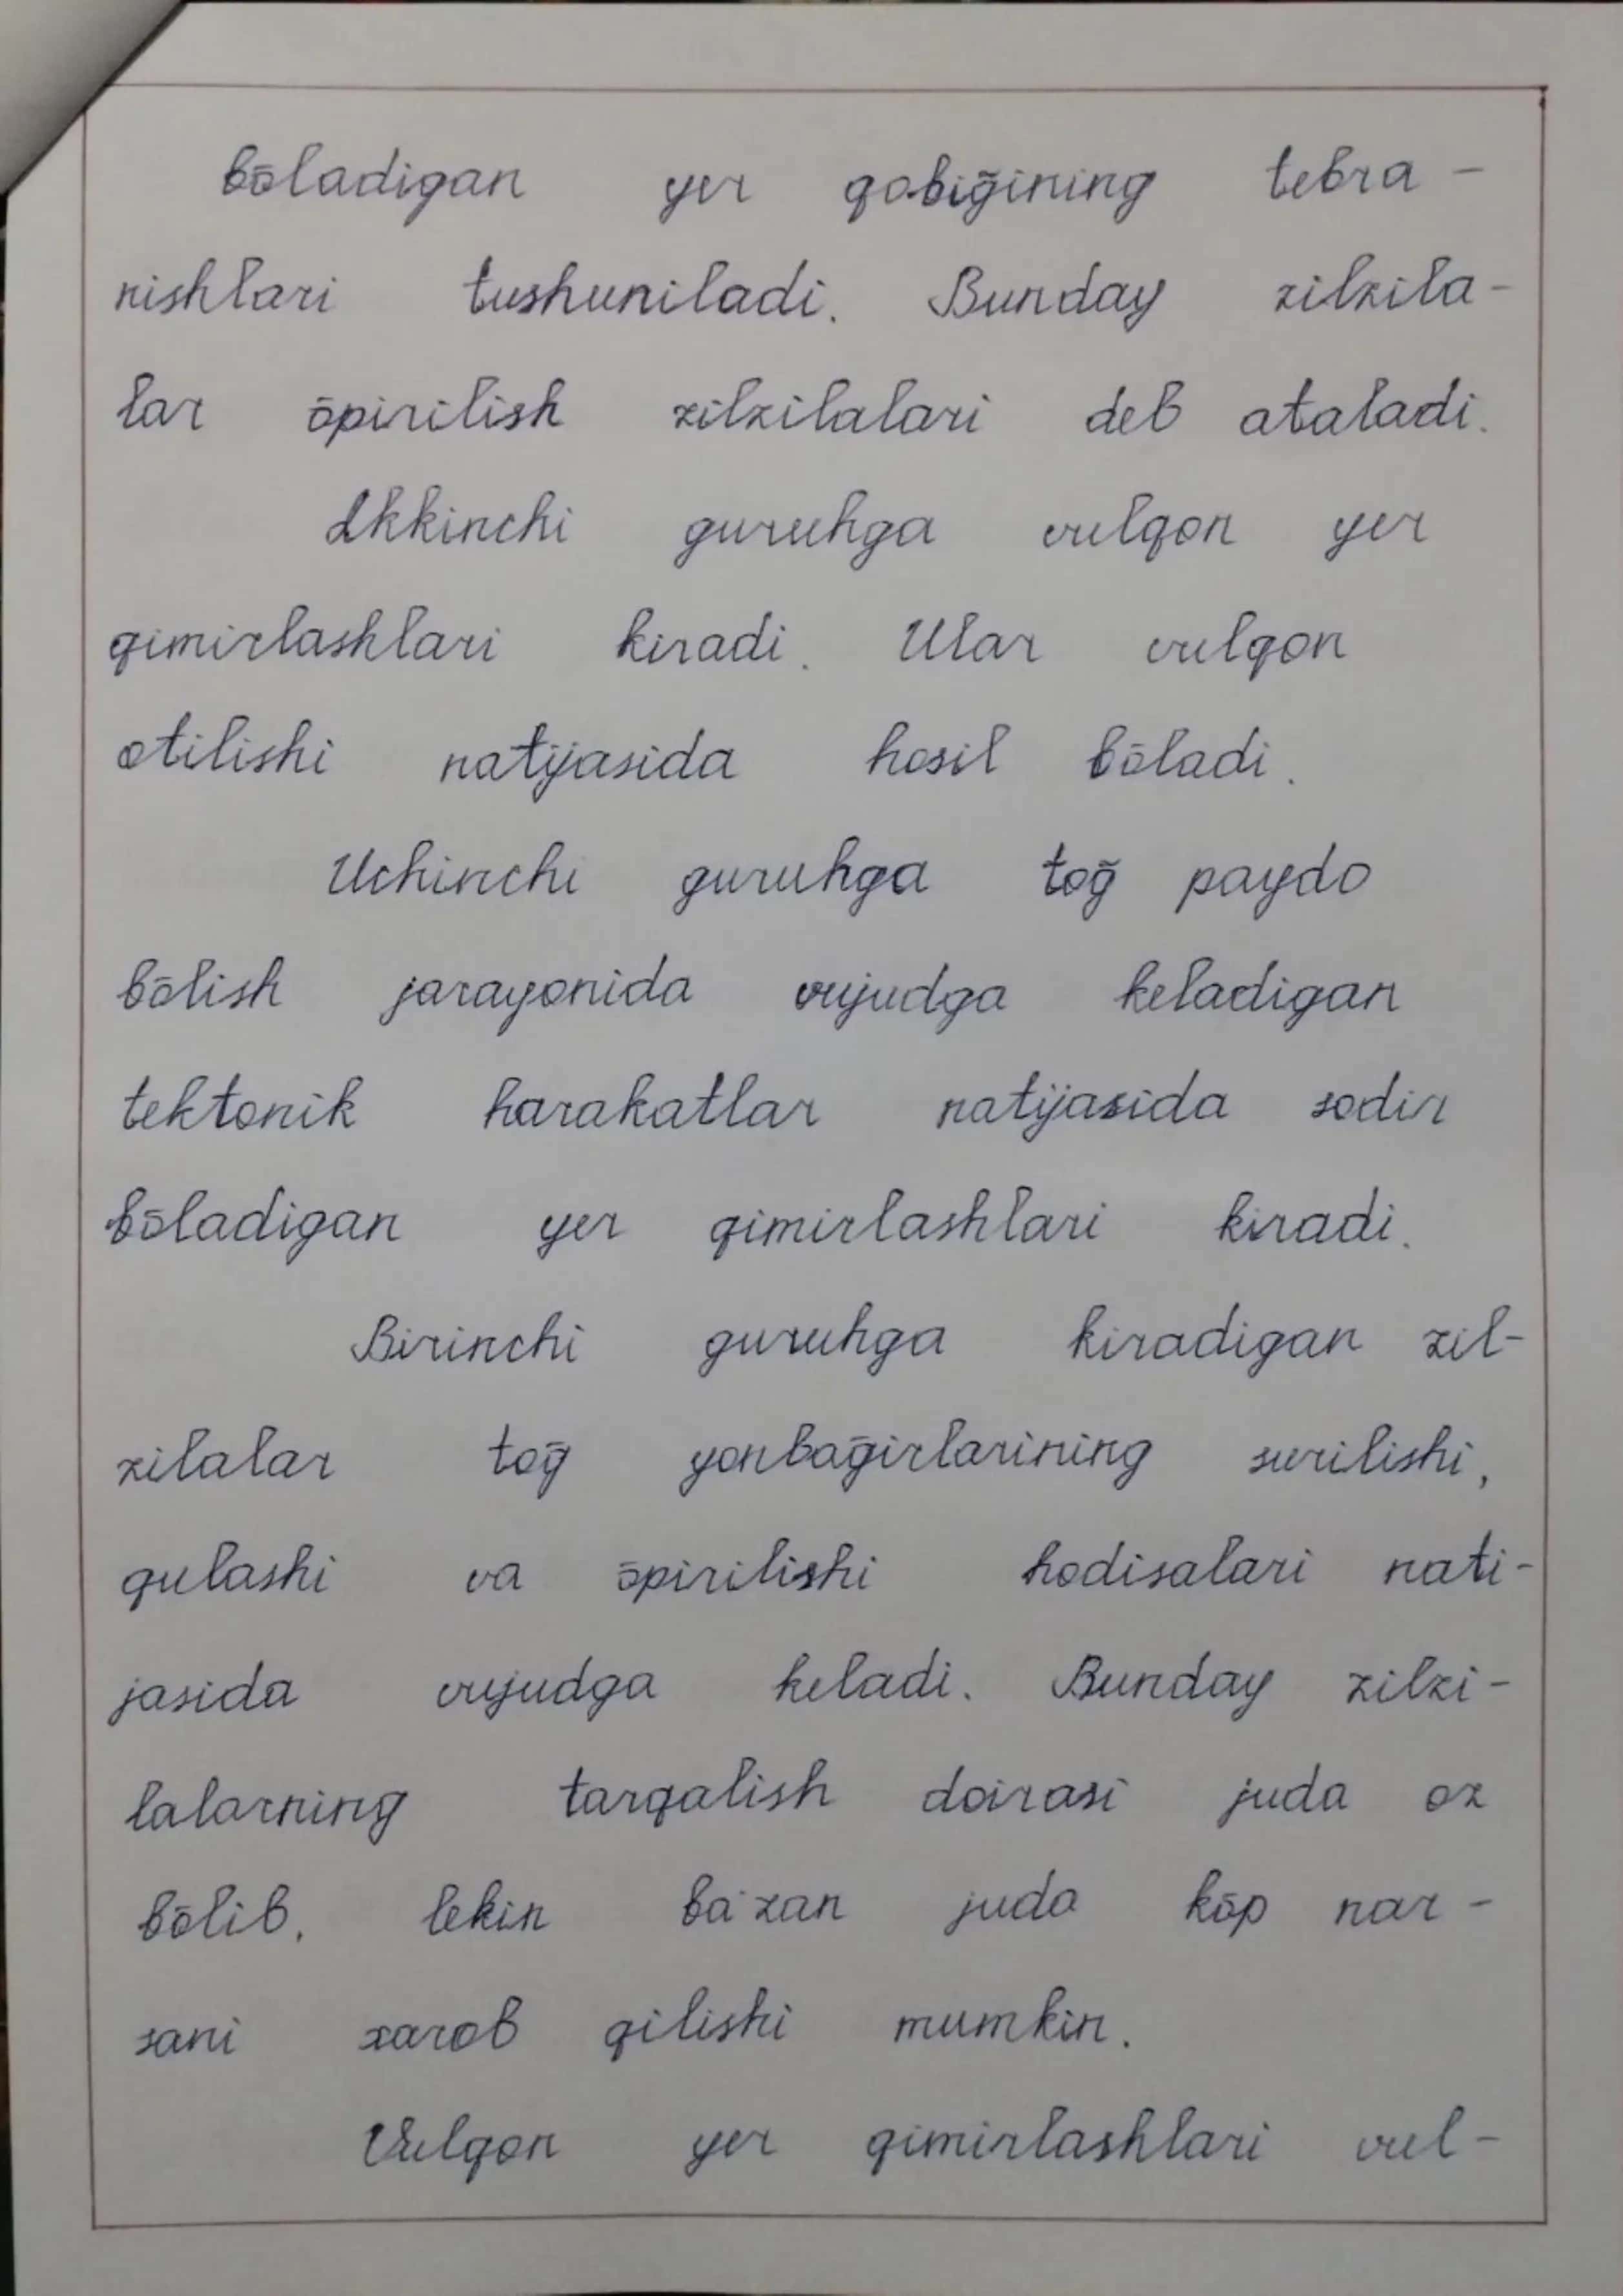 bōladigan yer qobiḡining tebra-
nishlari tushuniladi. Bunday zilzila-
lar ōpirilish zilzilalari deb ataladi.
Ikkinchi guruhga vulqon yer
qimirlashlari kiradi. Ular vulqon
otilishi natijasida hosil bōladi.
Uchinchi guruhga toḡ paydo
bōlish jarayonida vujudga keladigan
tektonik harakatlar natijasida sodir
bōladigan yer qimirlashlari kiradi.
Birinchi guruhga kiradigan zil-
zilalar toḡ yonbaḡirlarining surilishi,
qulashi va ōpirilishi hodisalari nati-
jasida vujudga keladi. Bunday zilzi-
lalarning tarqalish doirasi juda oz
bōlib, lekin ba'zan juda kōp nar-
sani xarob qilishi mumkin.
Vulqon yer qimirlashlari vul-